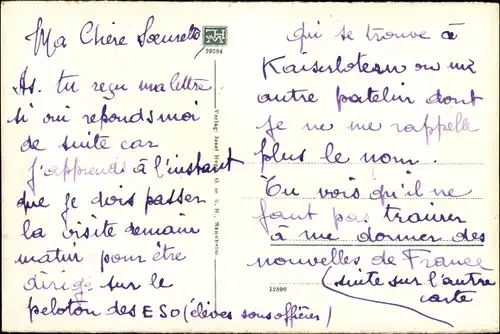 Ma Chère Sœurette
As. tu reçu ma lettre
si oui reponds moi
de suite car
j'apprends à l'instant
que je dois passer
la visite demain
matin pour être
dirigé sur le
peloton des ESO (élèves sous officier)
79584
Verlag: Josef H. G. m. b. H., Mannheim
12890
qui se trouve à
Kaiserloteau ou un
autre patelin dont
je ne me rappelle
plus le nom.
Tu vois qu'il ne
faut pas trainer
à me donner des
nouvelles de France
(suite sur l'autre
carte